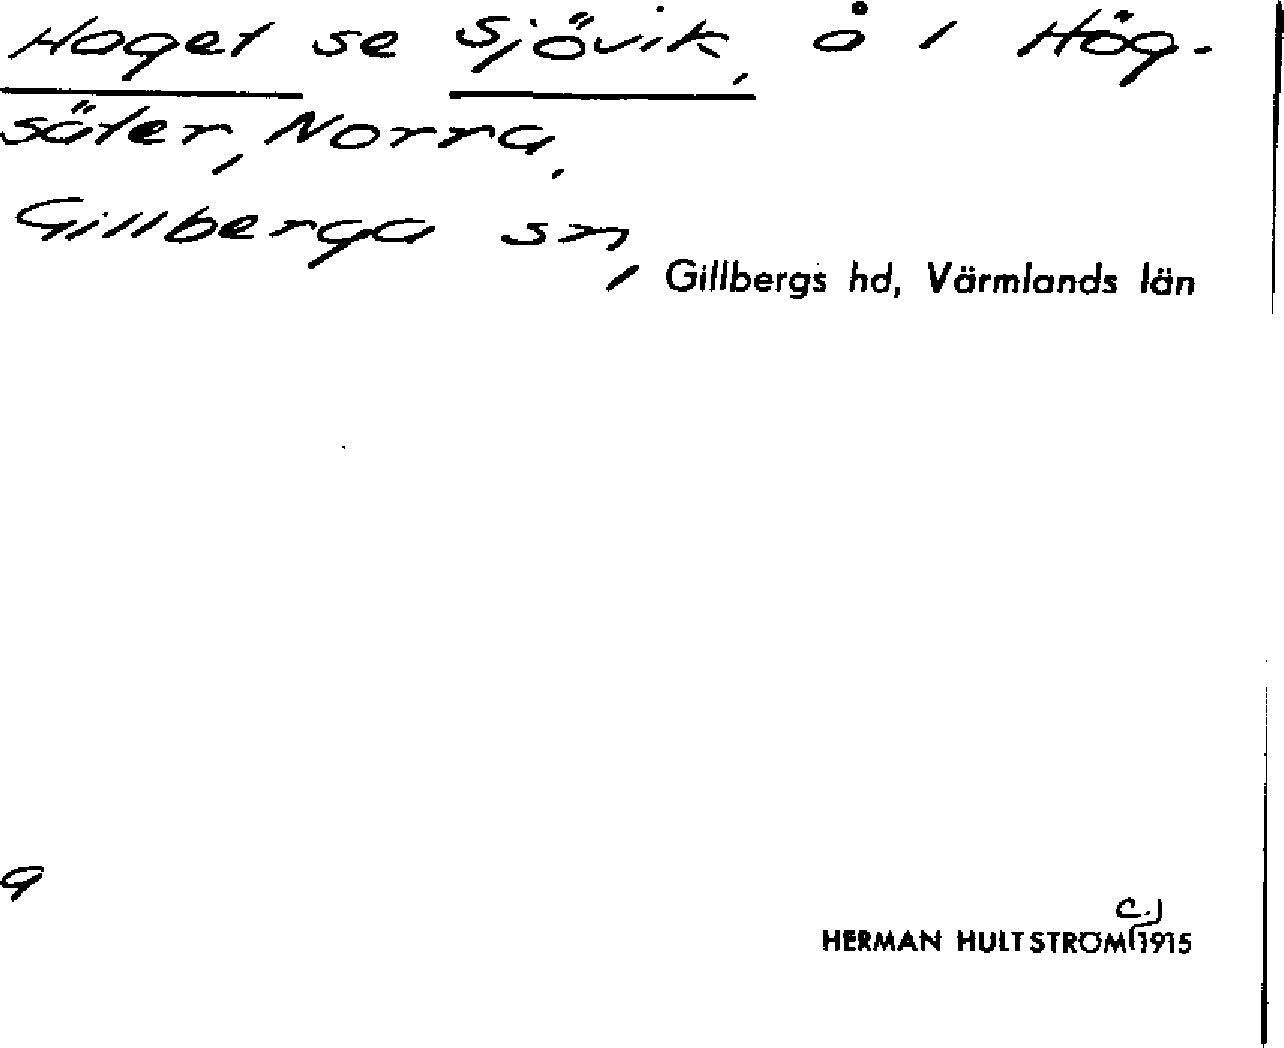 Haget se Sjövik, å i Hög-
säter, Norra,
Gillberga sn,
Gillbergs hd, Värmlands län
9
c.)
HERMAN HULTSTRÖM 1915